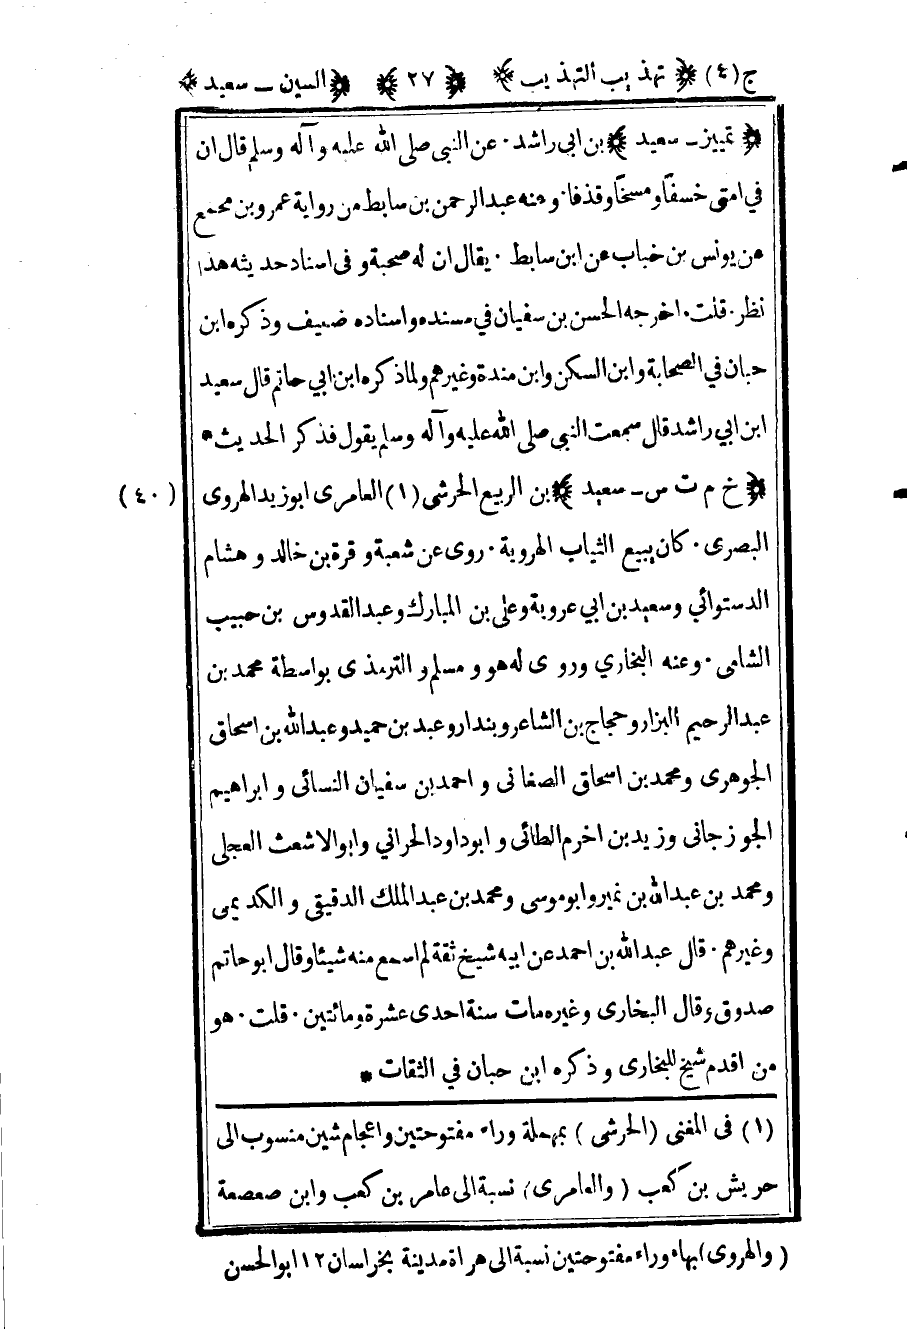 ج(٤) ﴿ تهذيب التهذيب ﴾ ﴿ ٢٧ ﴾ ﴿ السين ــ سعيد ﴾
﴿ تمييز ــ سعيد ﴾ بن ابى راشد · عن النبى صلى الله عليه وآله وسلم قال ان
في امتى خسفًا ومسخًا وقذفا · ومنه عبد الرحمن بن سابط من رواية عمرو بن مجمع
عن يونس بن خباب عن ابن سابط · يقال ان له صحبة و فى اسناد حديثه هذا
نظر · قلت · اخرجه الحسن بن سفيان في مسنده واسناده ضعيف وذكره ابن
حبان في الصحابة وابن السكن وابن مندة وغيرهم ولما ذكره ابن ابي حاتم قال سعيد
ابن ابي راشد قال سمعت النبى صلى الله عليه وآله وسلم يقول فذكر الحديث *
﴿ خ م ت س ــ سعيد ﴾ بن الربيع الحرشى (١) العامرى ابوزيد الهروى (٤٠)
البصرى · كان يبيع الثياب الهروية · روى عن شعبة وقرة بن خالد و هشام
الدستوائي وسعيد بن ابي عروبة وعلى بن المبارك وعبد القدوس بن حبيب
الشامى · وعنه البخاري وروى له هو و مسلم و الترمذى بواسطة محمد بن
عبد الرحيم البزار وحجاج بن الشاعر وبندار وعبد بن حميد وعبد الله بن اسحاق
الجوهرى ومحمد بن اسحاق الصغانى و احمد بن سفيان النسائى و ابراهيم
الجوزجانى وزيد بن اخرم الطائى و ابوداود الحراني وابو الاشعث العجلى
ومحمد بن عبد الله بن نمير وابو موسى ومحمد بن عبد الملك الدقيقى و الكديمى
وغيرهم · قال عبد الله بن احمد عن ابيه شيخ ثقة لم اسمع منه شيئا وقال ابو حاتم
صدوق وقال البخارى وغيره مات سنة احدى عشرة ومائتين · قلت · هو
من اقدم شيخ للبخارى وذكره ابن حبان في الثقات *
(١) فى المغنى (الحرشى) بمهملة وراء مفتوحتين واعجام شين منسوب الى
حريش بن كعب (والعامرى) نسبة الى عامر بن كعب وابن صعصعة
(والهروى) بهاء وراء مفتوحتين نسبة الى هراة مدينة بخراسان ١٢ ابو الحسن